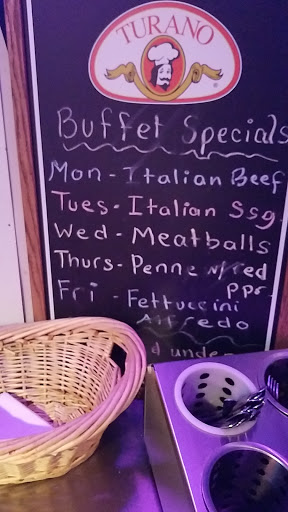 TURANO
Buffet Specials
Mon - Italian Beef
Tues - Italian Ssg.
Wed - Meatballs
Thurs - Penne w/red
ppr.
Fri - Fettuccini
Alfredo
d unde